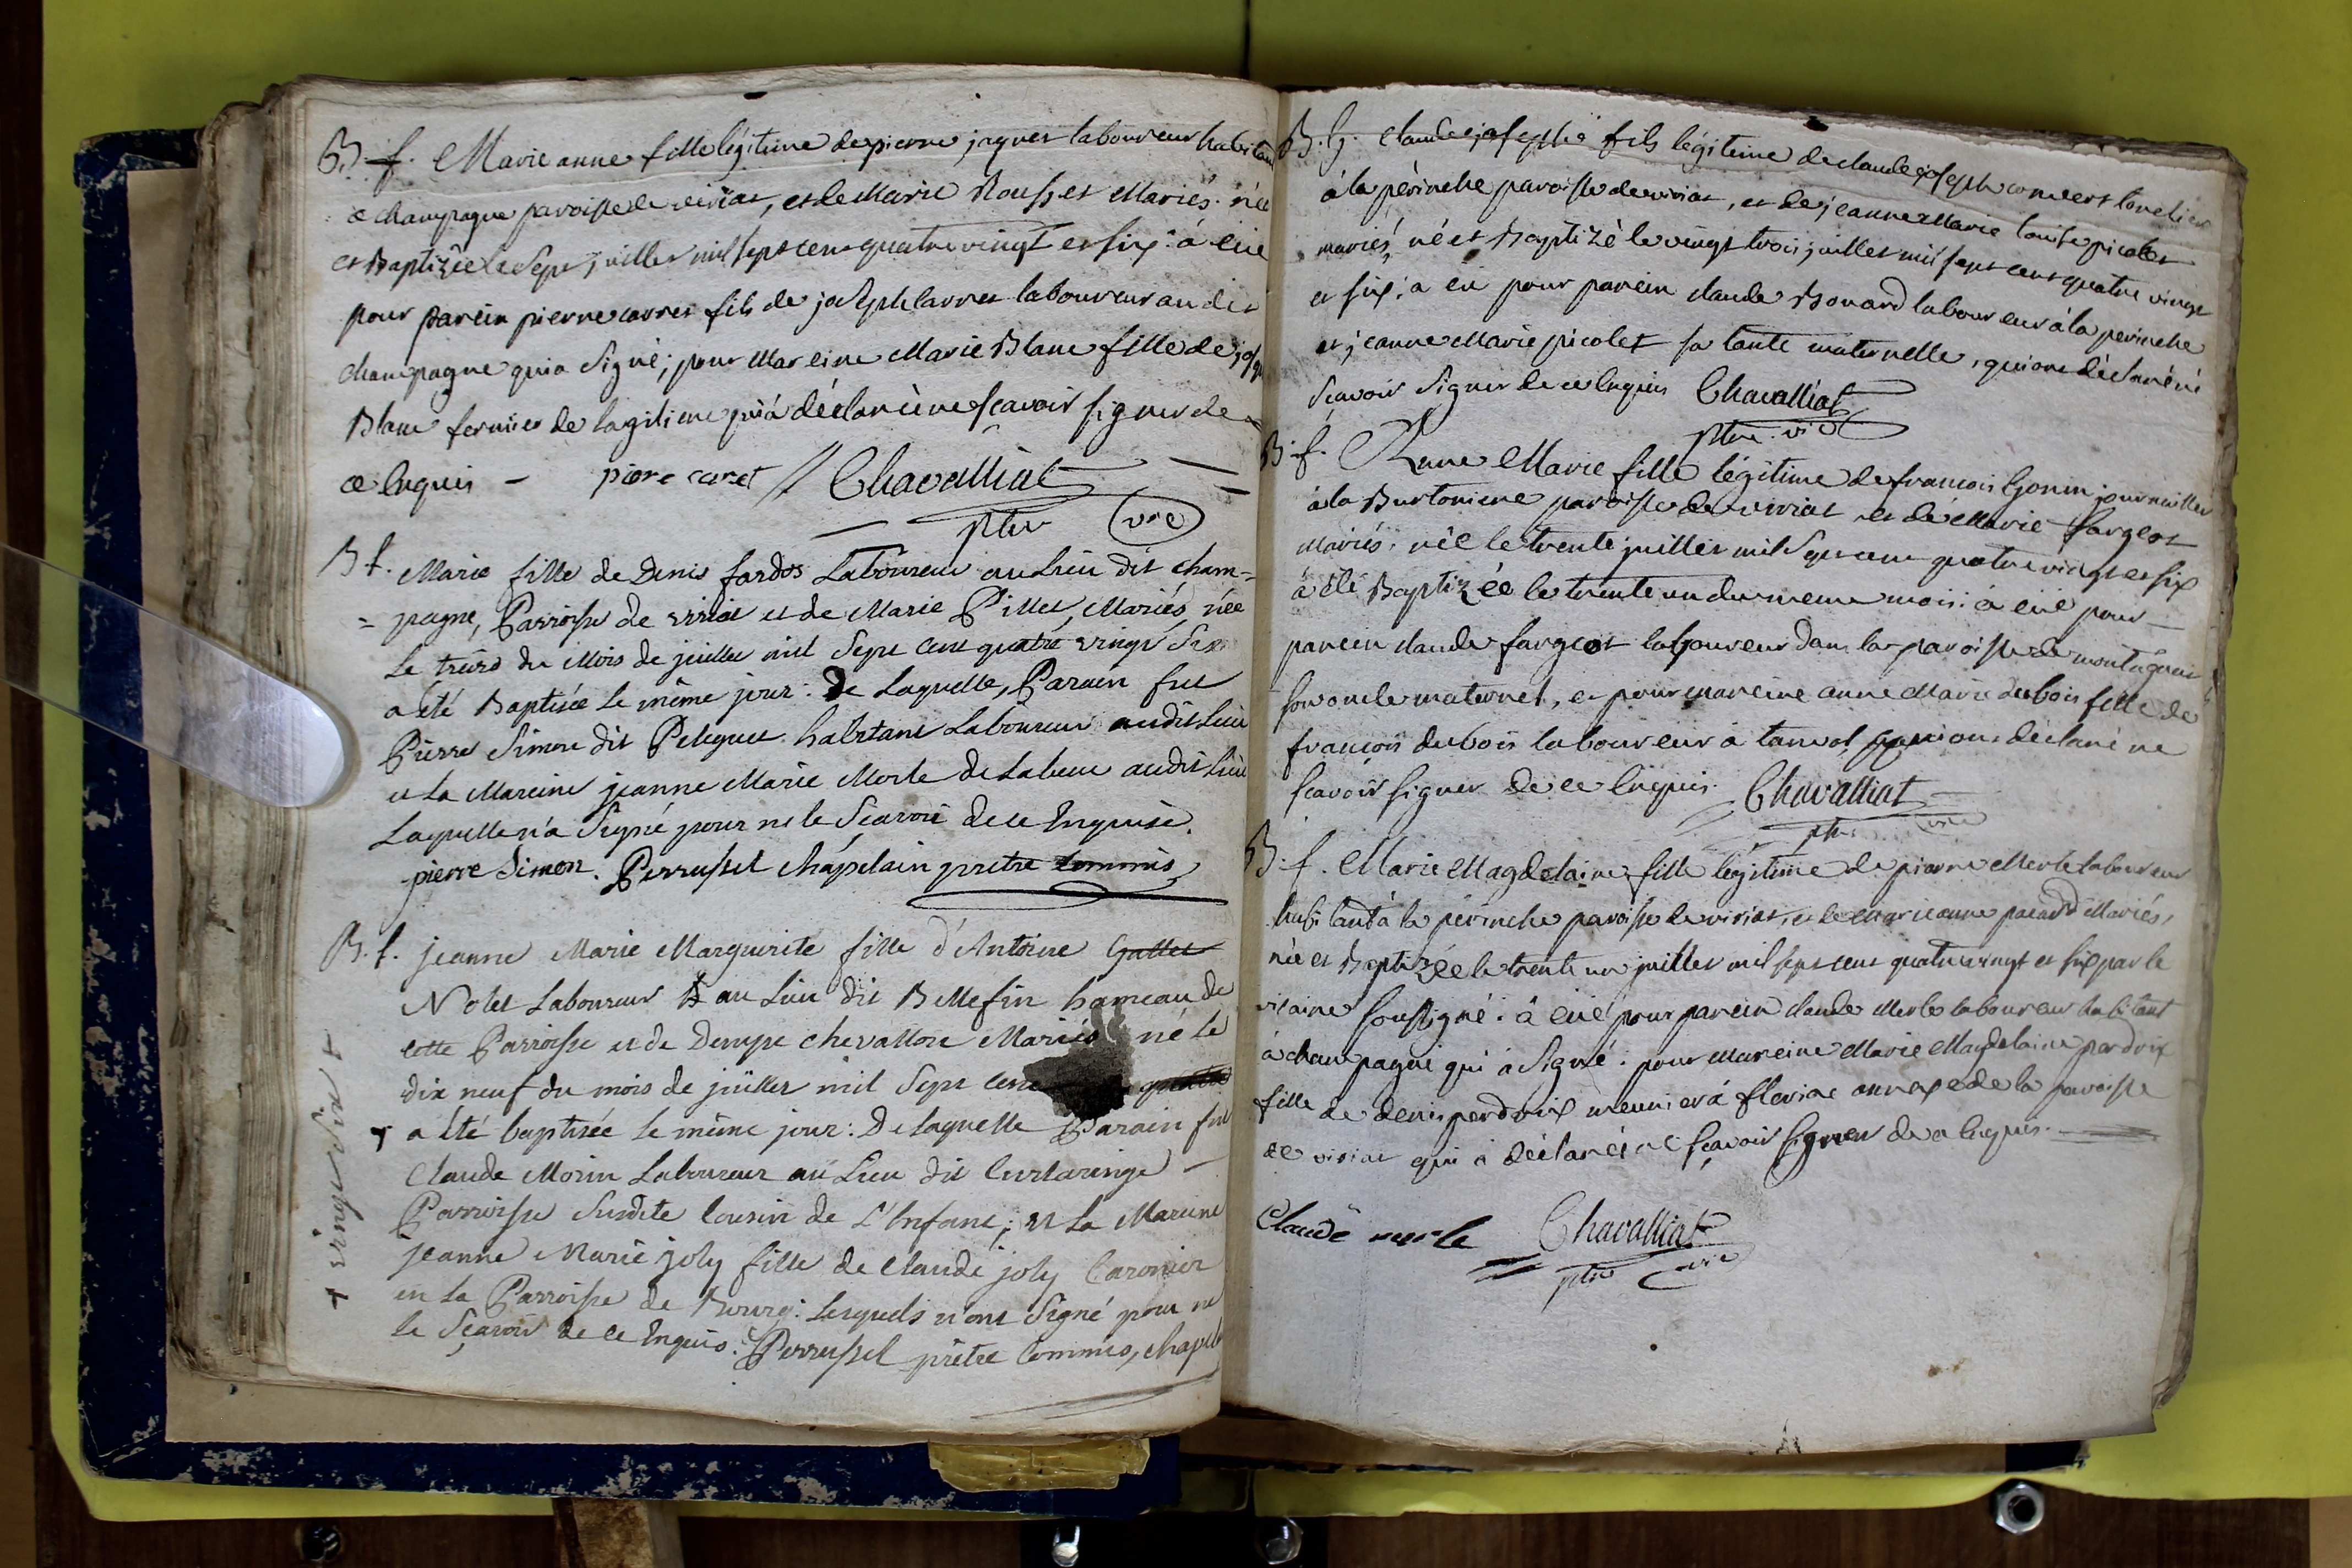 B. f. Marie anne fille légitime de pierre jaques laboureur habitant
a champagne paroisse de viriat, et de Marie Rousset Mariés. née
et Baptizée le Sept juillet mil sept cent quatre vingt et six: à eüe
pour parein pierre carret fils de joseph carret laboureur audit
champagne qui a signé; pour Mareine Marie Blanc fille de
Blanc fermier de qui à déclaré ne scavoir signer de
ce Enquis - piere caret // Chavalliat
ptre vre
B f. Marie fille de Denis fardos Laboureur au Lieu dit Cham=
=pagne, Parroisse de viriat et de Marie Pillet, Mariés, née
le treize du Mois de juillet mil Sept Cent quatre vingt Six
a été Baptisée le même jour: de Laquelle, Parain fut
Pierre Simon dit habitant Laboureur audit Lieu
et la Mareine jeanne Marie Morle audit Lieu
Laquelle n'a Signé pour ne le Scavoir de ce Enquise.
pierre Simon. Perrussel chapelain prêtre commis
B. f. jeanne Marie Marguerite fille d'Antoine Gallet
Nolet Laboureur au Lieu dit Bellefin hameau de
cette Parroisse et de Denyse chevallon Mariés né le
dix neuf du mois de juillet mil Sept Cent quatre
+ a été baptisée le même jour: De laquelle Parain fut
Claude Morin Laboureur au Lieu dit Curtaringe -
Parroisse Susdite Cousin de L'Enfant; et La Mareine
jeanne Marie joly fille de Claude joly
en La Parroisse de Bourg: Lesquels n'ont Signé pour ne
le Sçavoir de ce Enquis. Perrussel prêtre Commis, chapel
+ vingt six +
B. G. claude joseph fils légitime de claude joseph convert tonelier
à la périnche paroisse de viriat, et de jeanne Marie louise picolet
mariés, né et Baptizé le vingt trois juillet mil sept cent quatre vingt
et six: a eü pour parein claude Bonard laboureur à la perinche
et jeanne Marie picolet sa tante maternelle, qui ont déclaré ne
scavoir signer de ce Enquis Chavalliat
ptre. vre
B. f. Anne Marie fille légitime de francois Gonin journaillier
à la Burtoniere paroisse de viriat et de Marie fargeot
Mariés: née le trente juillet mil Sept cent quatre vingt et six
à été Baptizée le trente un du meme mois: à eüe pour -
parein claude fargeot laboureur dans la paroisse de
son oncle maternel, et pour mareine anne Marie dubois fille de
françois dubois laboureur à qui ont déclaré ne
scavoir signer de ce Enquis. Chavalliat
ptre vre
B. f. Marie Magdelaine fille légitime de pierre Merle laboureur
habitant à la périnche paroisse de viriat, et de Marie anne Mariés,
née et Baptizée le trente un juillet mil sept cent quatre vingt et six par le
vicaire soussigné: à eüe pour parein claude Merle laboureur habitant
à champagne qui à signé: pour Mareine Marie Magdelaine perdrix
fille de denis perdrix meunier à fleriac annexe de la paroisse
de viriat qui à déclaré ne scavoir signer de ce Enquis.
Claude merle Chavalliat
ptre vre